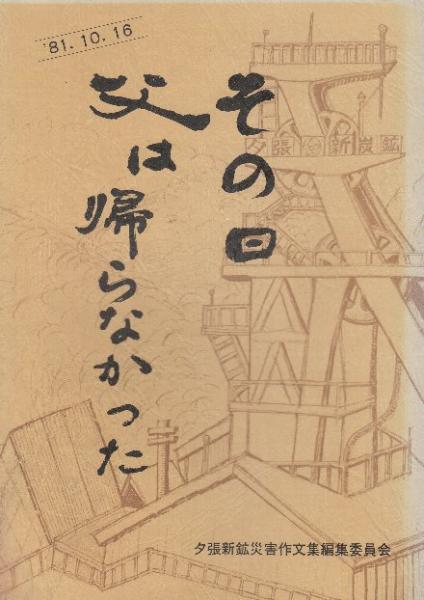 '81.10.16
その日
父は
帰らなかった
夕張新炭鉱
夕張新鉱災害作文集編集委員会